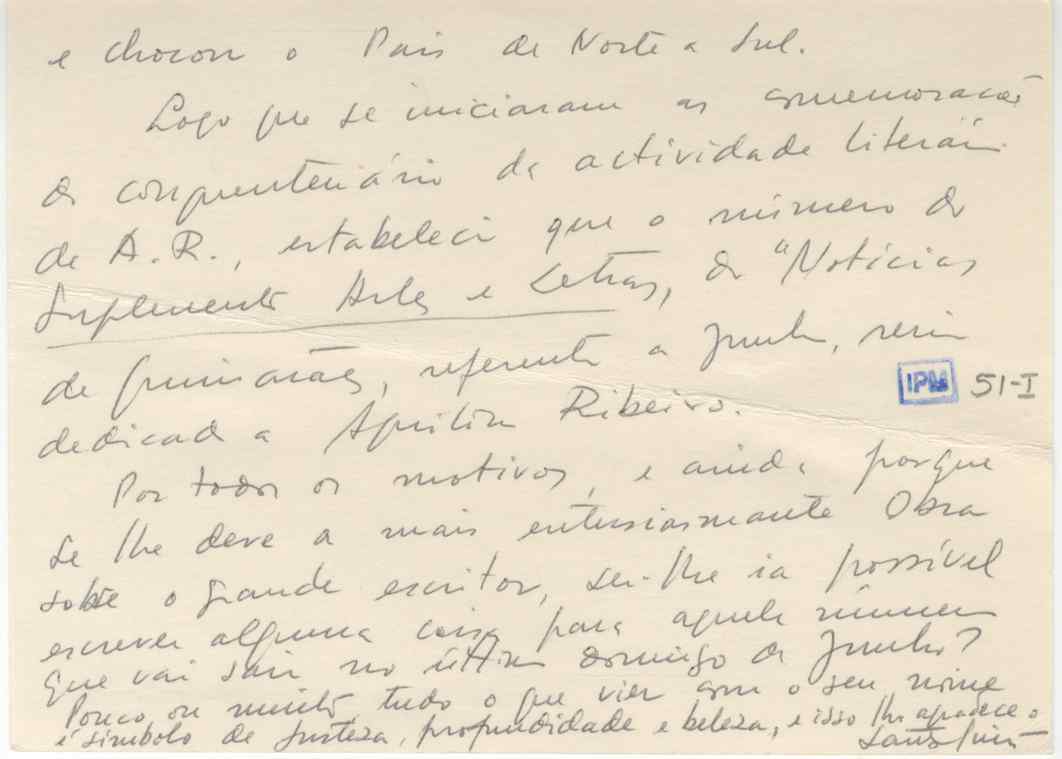 e chocou o País de Norte a Sul.
Logo que se iniciaram as comemorações
do conquentenário da actividade literária
de A. R., estabeleci que o número do
Suplemento Artes e Letras, do "Notícias
de Guimarães, referente a Junho, seria
IPM 51-I
dedicado a Aquilino Ribeiro.
Por todos os motivos, e ainda porque
se lhe deve a mais entusiasmante Obra
sobre o grande escritor, ser-lhe ia possível
escrever alguma coisa para aquele número
que vai sair no último domingo de Junho?
Pouco ou muito tudo o que vier com o seu nome
é símbolo de justeza, profundidade e beleza, e isso lhe agradece o
Santos Simões